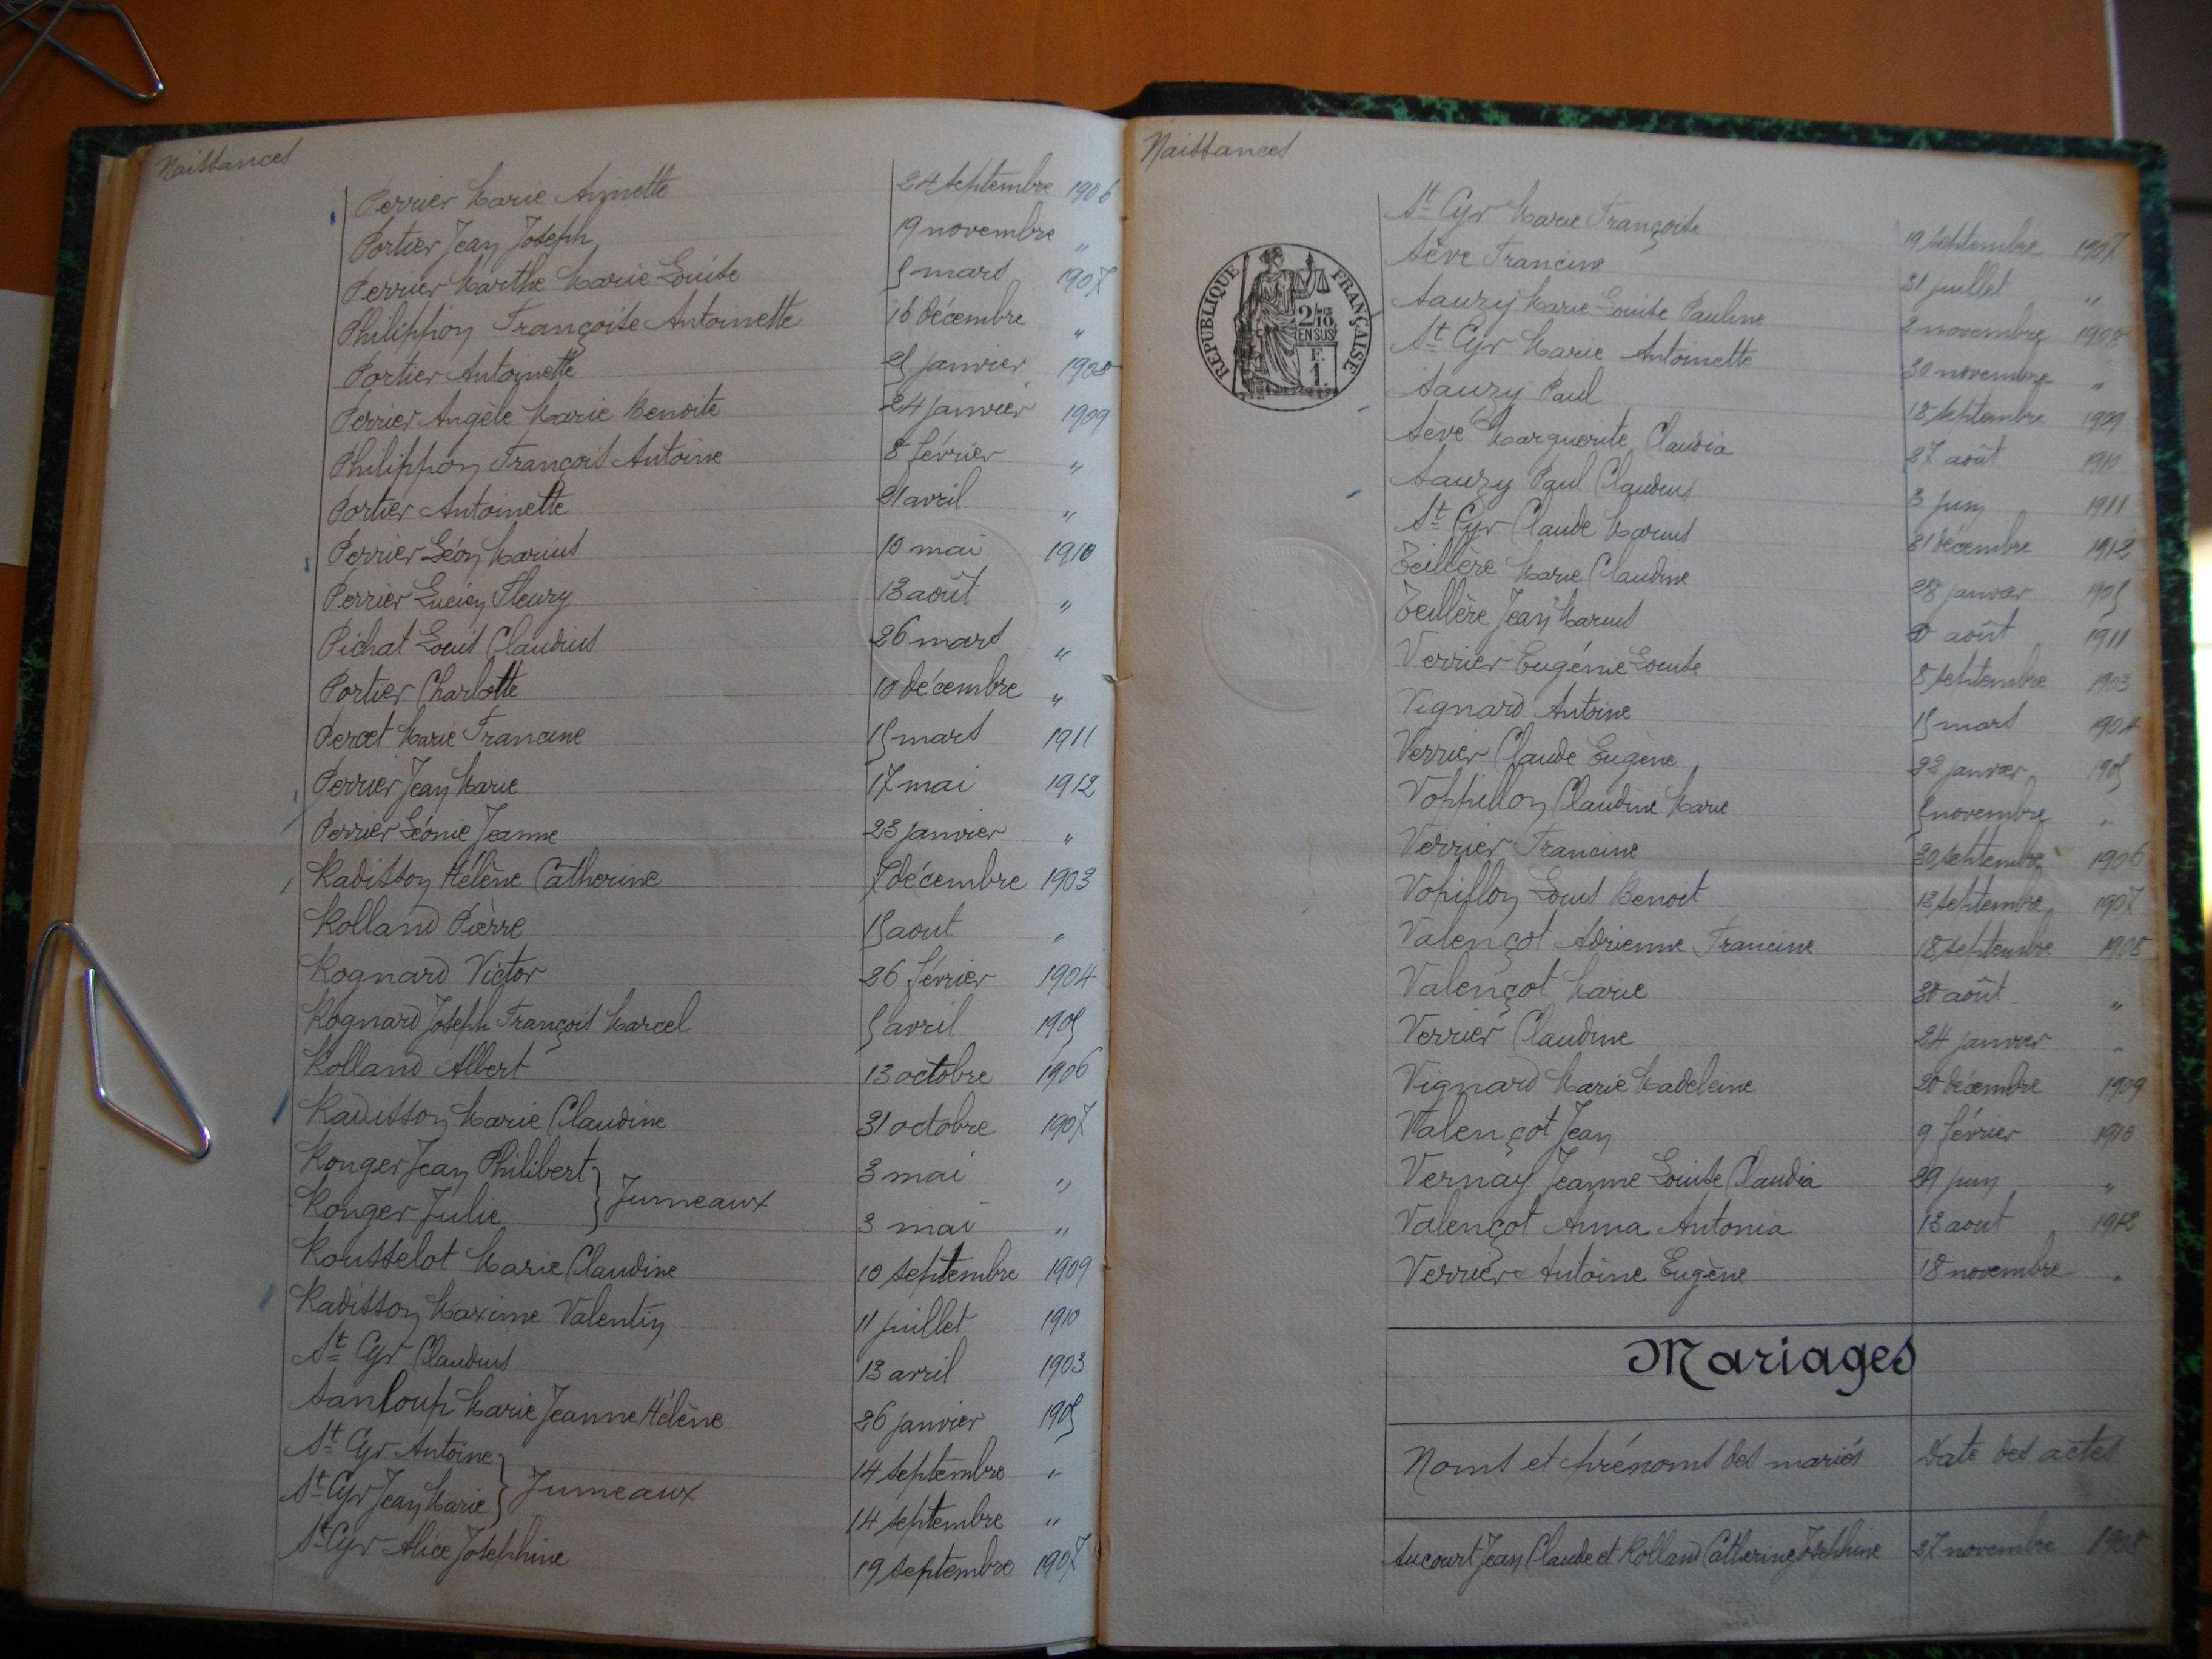 Naissances
Perrier Marie Annette 24 septembre 1906
Portier Jean Joseph 19 novembre "
Perrier Marthe Marie Louise 5 mars 1907
Philippon Françoise Antoinette 16 décembre "
Portier Antoinette 25 janvier 1908
Perrier Angèle Marie Benoite 24 janvier 1909
Philippon François Antoine 8 février "
Portier Antoinette 21 avril "
Perrier Léon Marius 10 mai 1910
Perrier Lucien Fleury 13 août "
Pichat Louis Claudius 26 mars "
Portier Charlotte 10 décembre "
Percet Marie Francine 15 mars 1911
Perrier Jean Marie 17 mai 1912
Perrier Léonie Jeanne 23 janvier "
Radisson Hélène Catherine 7 décembre 1903
Rolland Pierre 15 aout "
Rognard Victor 26 février 1904
Rognard Joseph François Marcel 5 avril 1905
Rolland Albert 13 octobre 1906
Radisson Marie Claudine 31 octobre 1907
Ronger Jean Philibert } Jumeaux 3 mai "
Ronger Julie 3 mai "
Rousselot Marie Claudine 10 septembre 1909
Radisson Maxime Valentin 11 juillet 1910
St Cyr Claudius 13 avril 1903
Sanloup Marie Jeanne Hélène 26 janvier 1905
St Cyr Antoine } Jumeaux 14 septembre "
St Cyr Jean Marie 14 septembre "
St Cyr Alice Joséphine 19 septembre 1907
Naissances
RÉPUBLIQUE FRANÇAISE
2/10
EN SUS
F.
1.
St Cyr Marie Françoise 19 septembre 1907
Sève Francine 31 juillet "
Sauzy Marie Louise Pauline 2 novembre 1908
St Cyr Marie Antoinette 30 novembre "
Sauzy Paul 18 septembre 1909
Seve Marguerite Claudia 27 août 1910
Sauzy Paul Claudius 3 juin 1911
St Cyr Claude Marius 31 décembre 1912
Teillère Marie Claudine 28 janvier 1905
Teillère Jean Marius août 1911
Verrier Eugénie Louise 8 septembre 1903
Vignard Antoine 15 mars 1904
Verrier Claude Eugène 22 janvier 1905
Voppillon Claudine Marie 5 novembre "
Verrier Francine 30 septembre 1906
Vopillon Louis Benoit 13 septembre 1907
Valençot Adrienne Francine 18 septembre 1908
Valençot Marie 30 août "
Verrier Claudine 24 janvier "
Vignard Marie Madeleine 20 décembre 1909
Valençot Jean 9 février 1910
Vernay Jeanne Louise Claudia 29 juin "
Valençot Anna Antonia 13 aout 1912
Verrier Antoine Eugène 18 novembre "
Mariages
Noms et prénoms des mariés Date des actes
Aucourt Jean Claude et Rolland Catherine Joséphine 27 novembre 1908